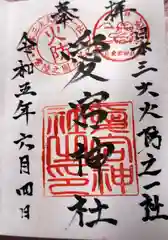 奉拝
日本三大火防之一社
火防
愛宕神社
愛宕神社之印
令和五年六月四日